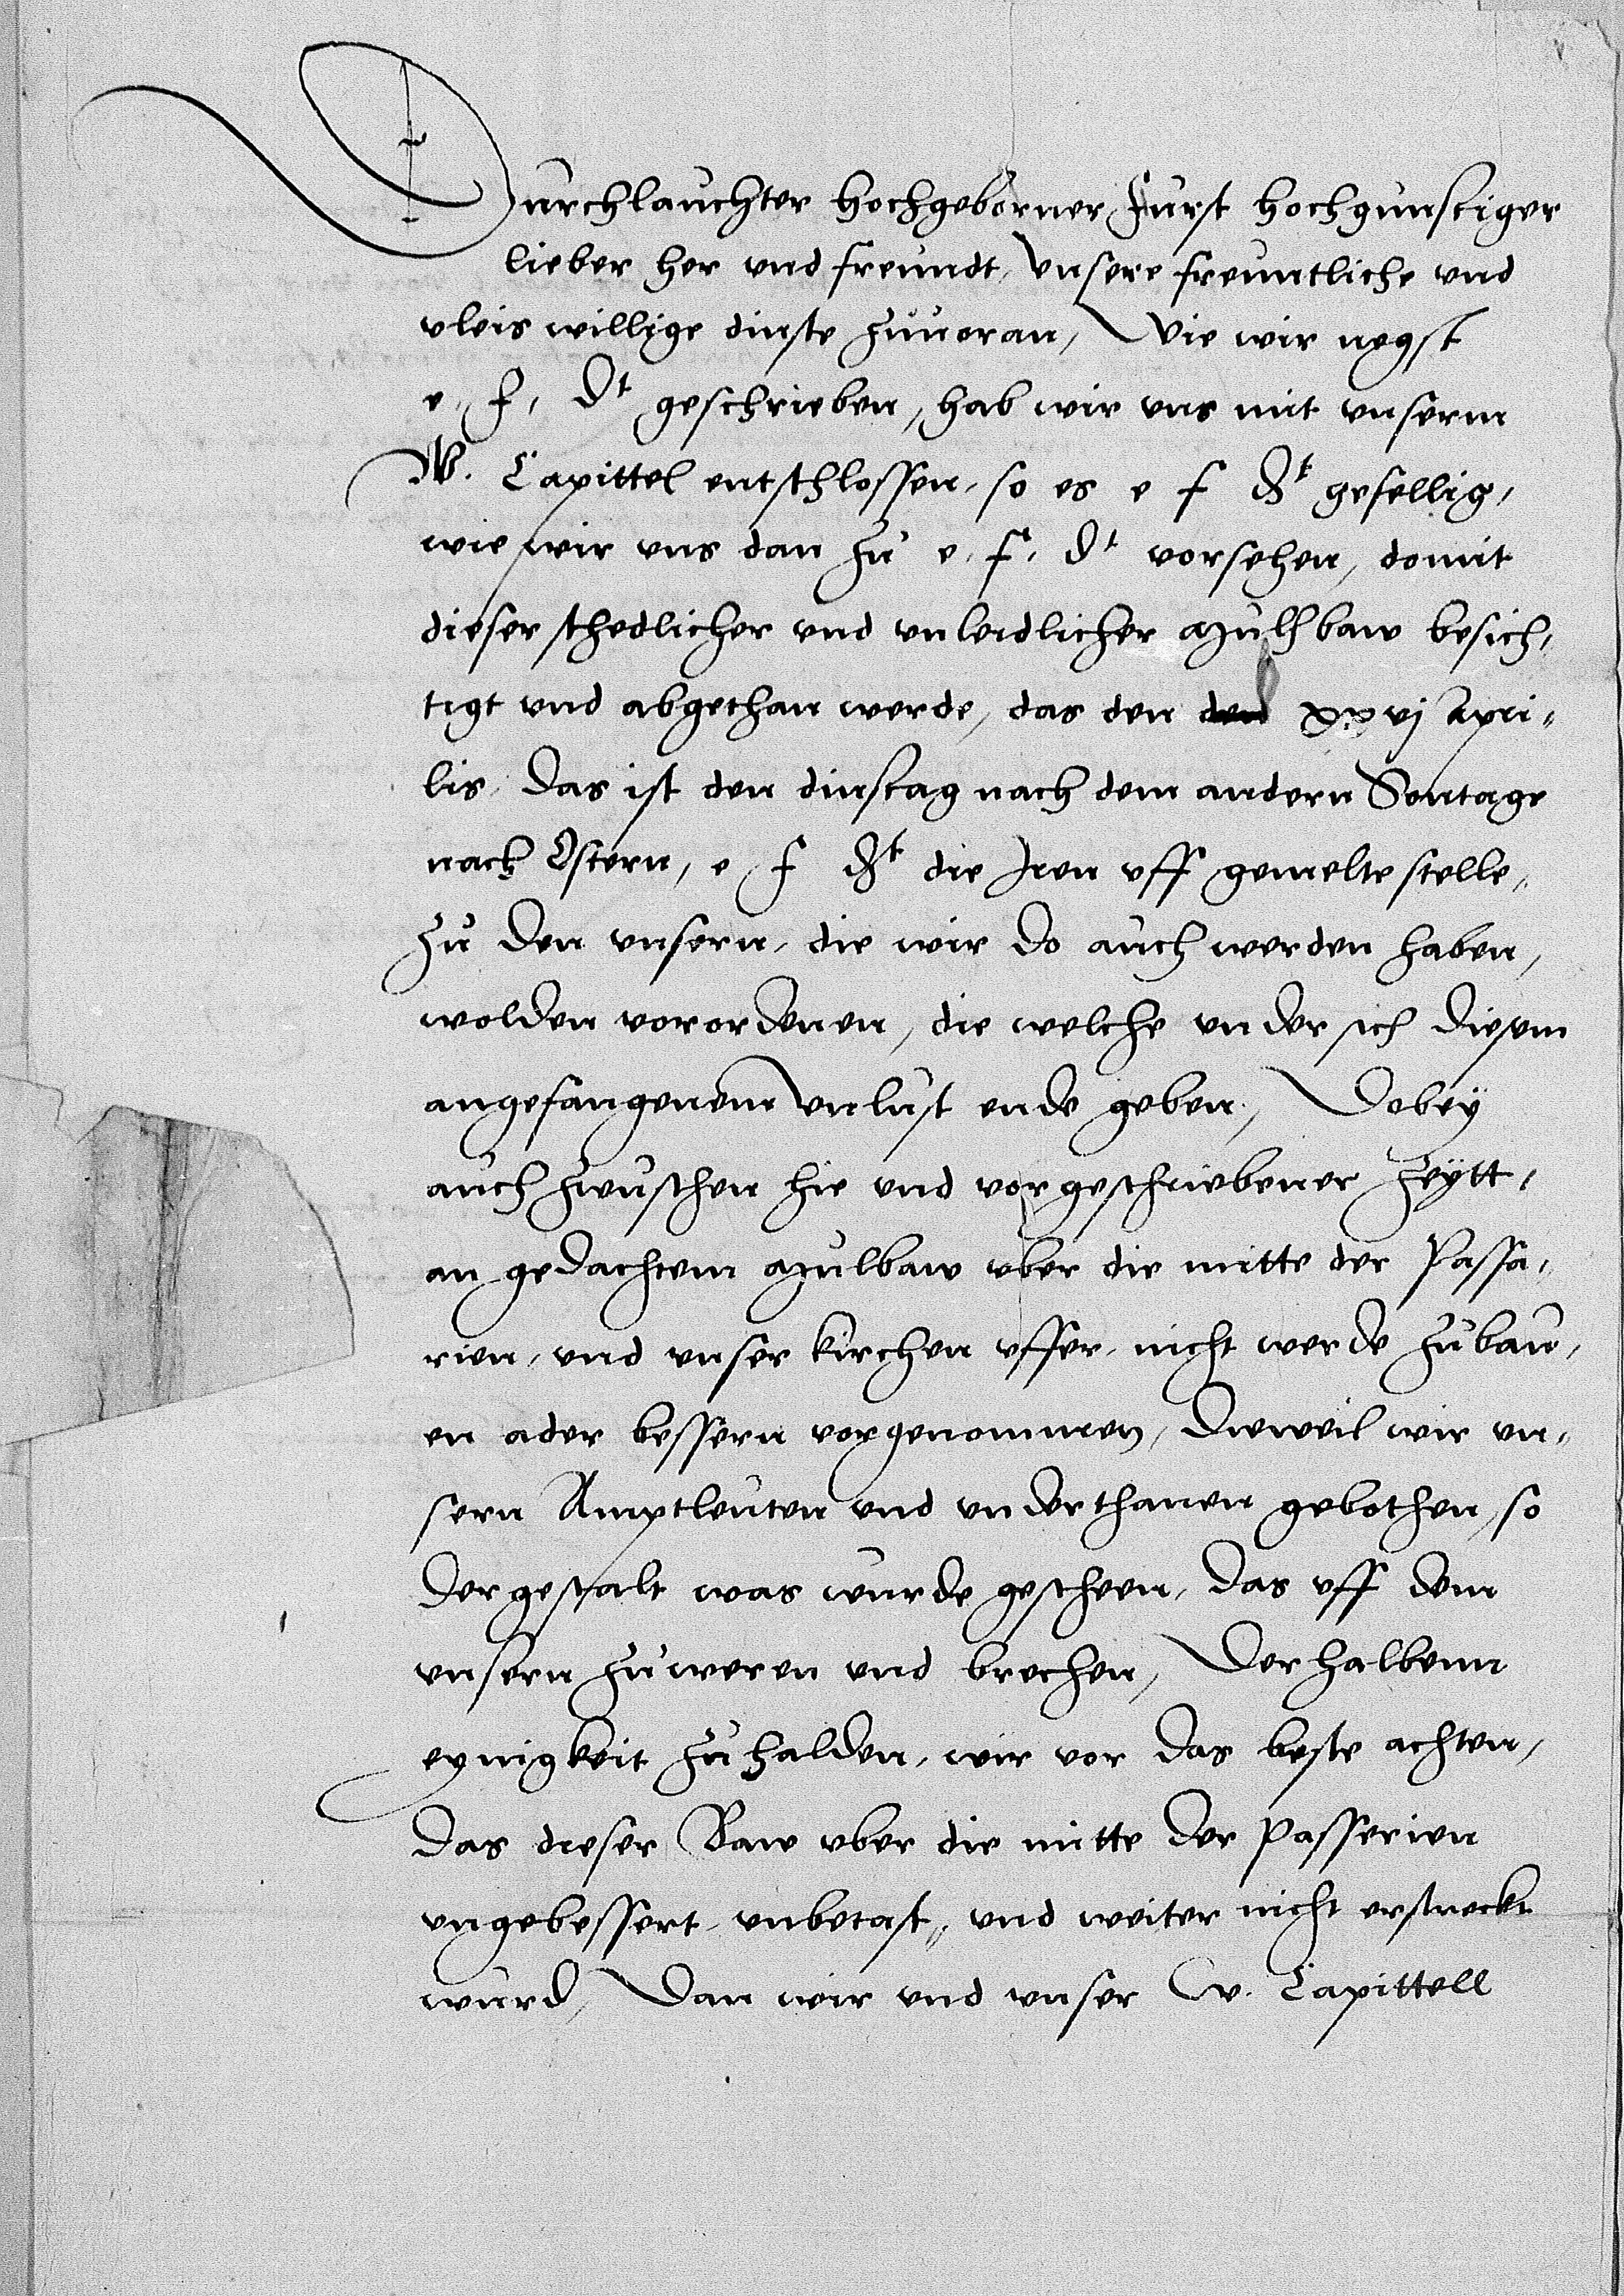 Durchlauchter hochgeborner furst hochgunstiger
lieber her vnd freundt, vnsere freuntliche vnd
vleis willige dinste zuuoran, Wie wir negst
e. f. Dt geschrieben, hab wir vns mit vnserm
W. Capittel entschlossen, so es e f Dt gefellig,
wie wir vns dan zu e. f. Dt vorsehen, domit
dieser schedlicher vnd vnleidlicher Mulbaw besich,
tigt vnd abgethan werde, das den den xxvj Apri,
lis, das ist den dinstag nach dem andern Sontage
nach Ostern, e f Dt die Iren vff gemelte stelle,
zu den vnsern, die wir do auch werden haben,
wolden verordenen, die welche vnder sich diesem
angefangenem vnlust ende geben, Dobey
auch zwuschen hie vnd vorgeschriebener zeytt,
an gedachtem Mulbaw vber die mitte der Passa,
rien, vnd vnser kirchen vffer, nicht werde zubau,
en ader bessern vorgenommen, Dieweil wir vn,
sern Amptleuten vnd vnderthanen gebothen, so
dergestalt was wurde gescheen, das vff dem
vnsern zuweren vnd brechen, Derhalbenn
eynigkeit zuhalden, wir vor das beste achten,
das dieser Baw vber die mitte der Passerien
vngebessert, vnbetast, vnd weiter nicht erstreckt
wurd, Dan wir vnd vnser W. Capittell